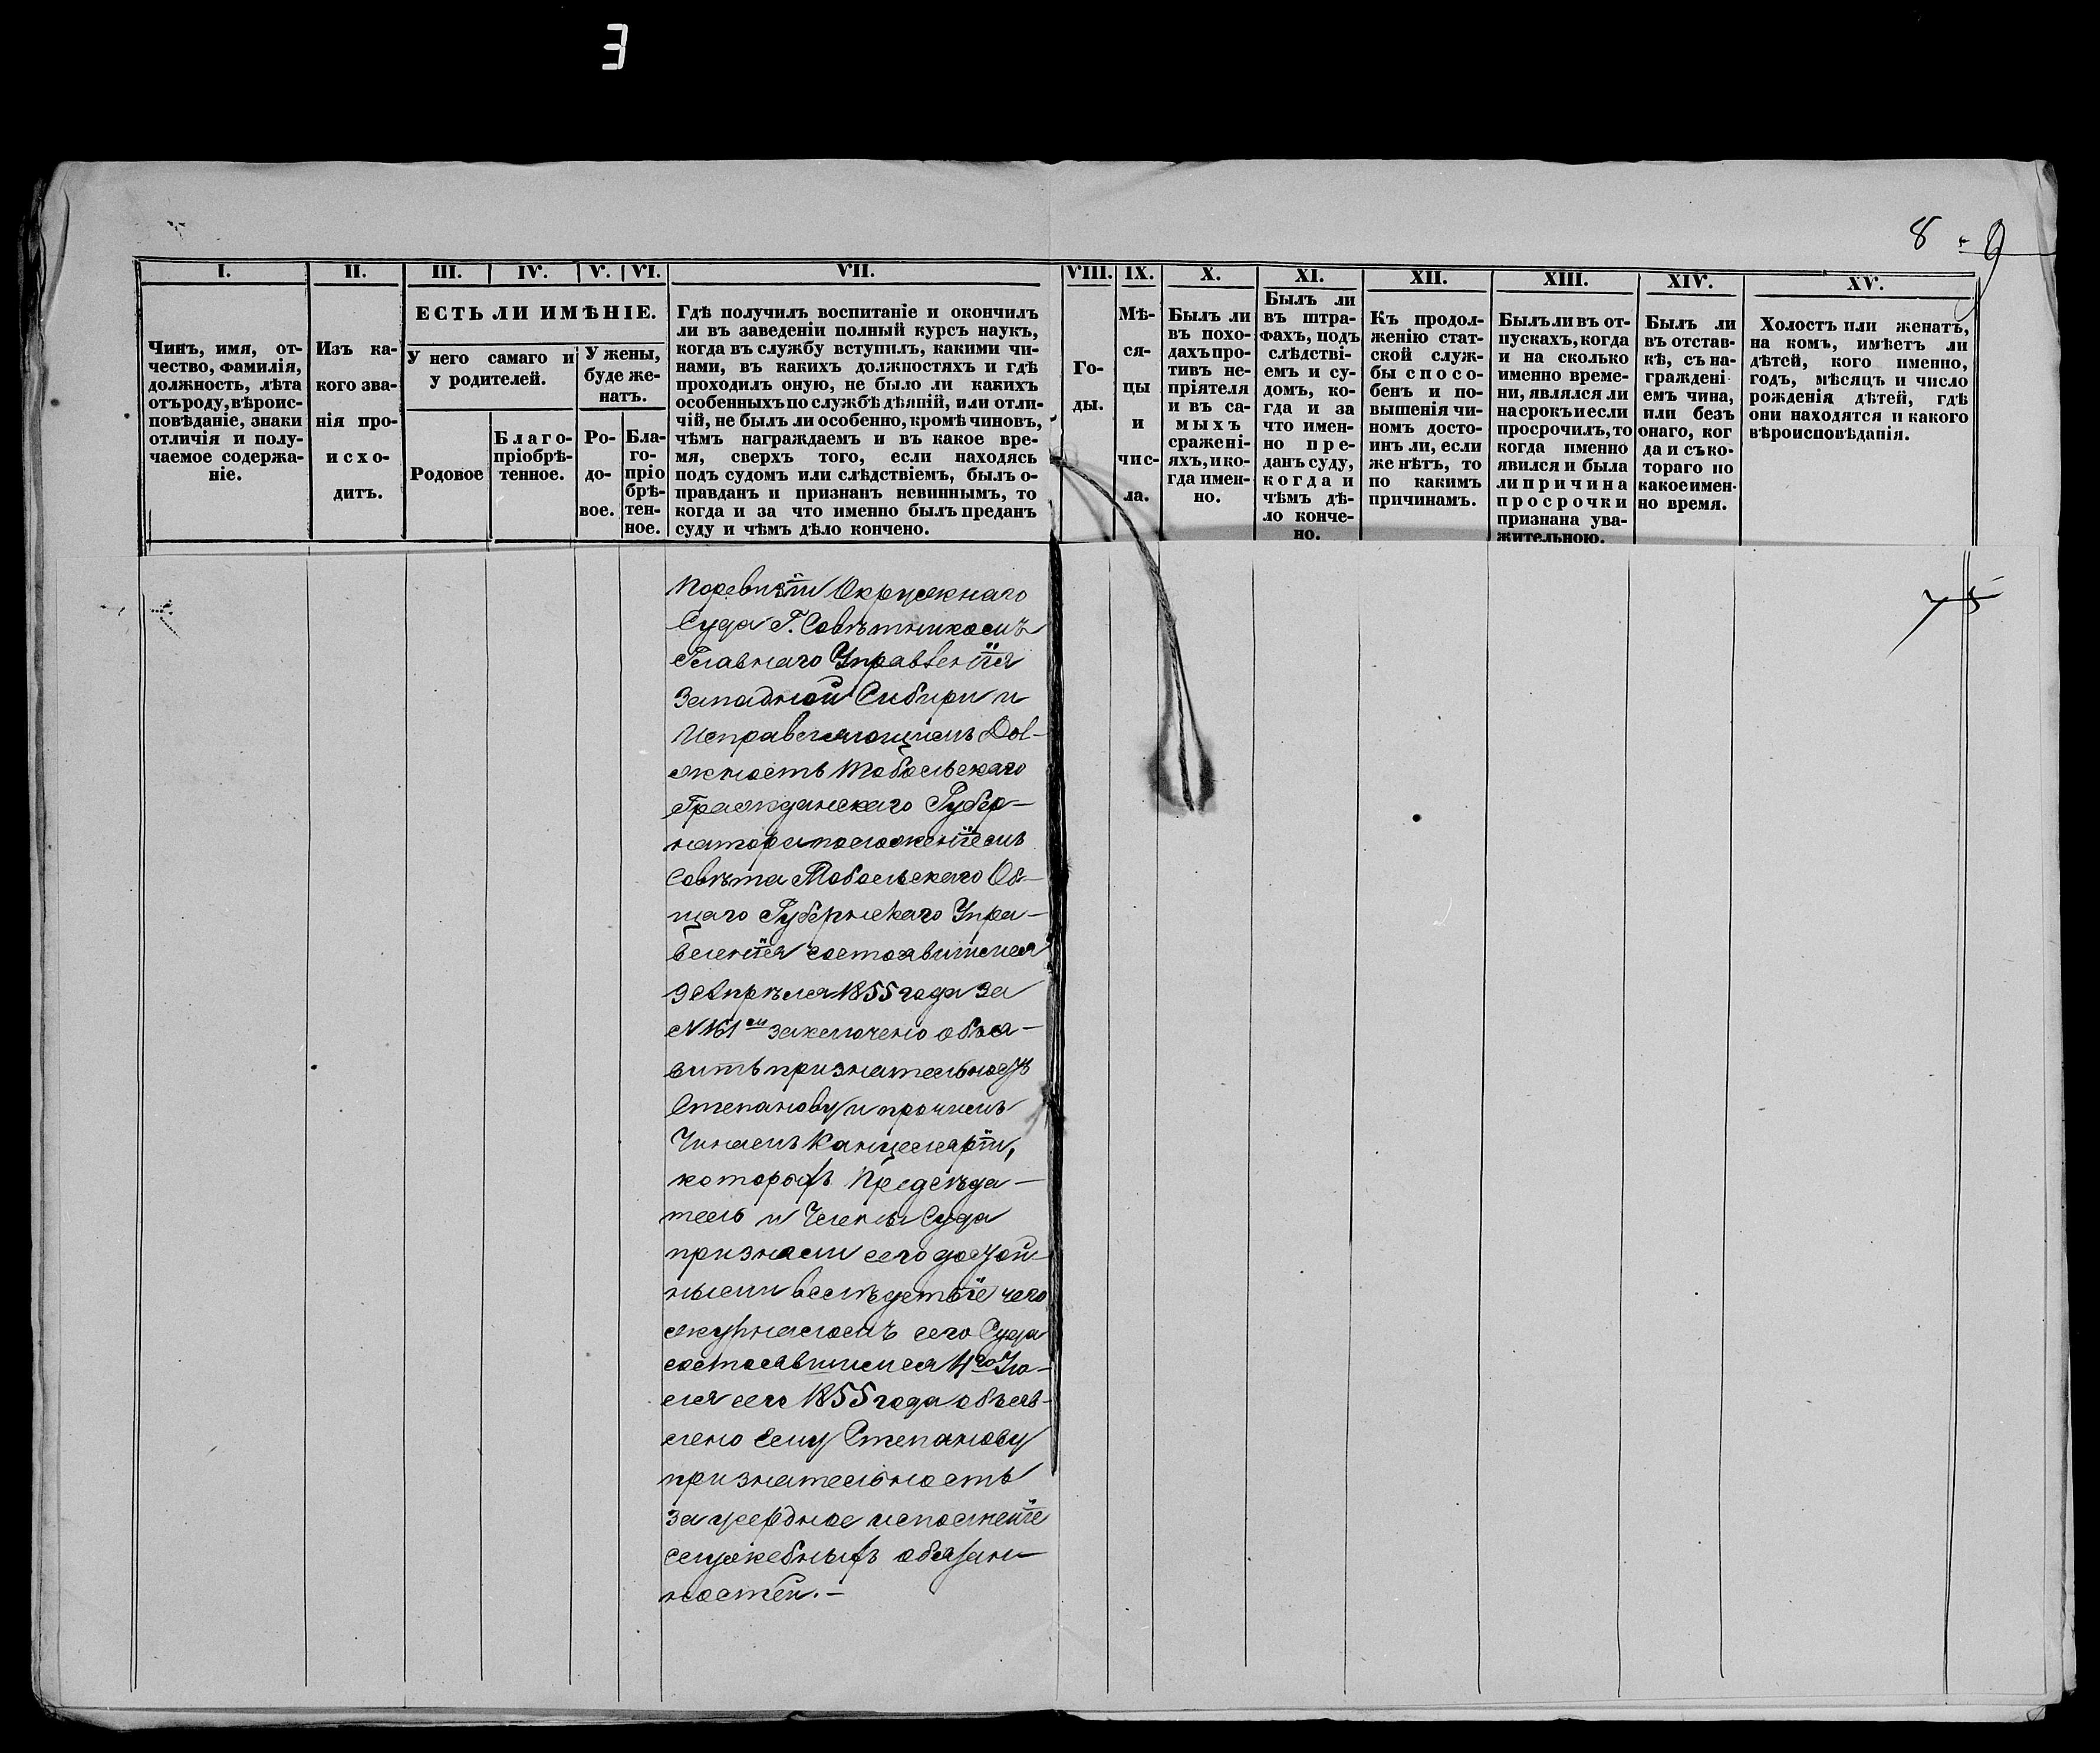 3
8 - 9
I.
Чинъ, имя, от-
чество, фамилія,
должность, лѣта
отъ роду, вѣроис-
повѣданіе, знаки
отличія и полу-
чаемое содержа-
ніе.
II.
Изъ ка-
кого зва-
нія про-
исхо-
дитъ.
III. IV. V. VI.
ЕСТЬ ЛИ ИМѢНІЕ.
У него самаго и
у родителей.
У жены,
буде же-
натъ.
Родовое
Благо-
пріобрѣ-
тенное.
Ро-
до-
вое.
Бла-
го-
прiо
брѣ-
тен-
ное.
VII.
Гдѣ получилъ воспитаніе и окончилъ
ли въ заведеніи полный курсъ наукъ,
когда въ службу вступилъ, какими чи-
нами, въ какихъ должностяхъ и гдѣ
проходилъ оную, не было ли какихъ
особенныхъ по службѣ дѣяній, или отли-
чій, не былъ ли особенно, кромѣ чиновъ,
чѣмъ награждаемъ и въ какое вре-
мя, сверхъ того, если находясь
подъ судомъ или слѣдствіемъ, былъ о-
правданъ и признанъ невиннымъ, то
когда и за что именно былъ преданъ
суду и чѣмъ дѣло кончено.
VIII.
Го-
ды.
IX.
Мѣ-
ся-
цы
и
чис-
ла.
X.
Былъ ли
въ похо-
дахъ про-
тивъ не-
пріятеля
и въ са-
мыхъ
сраженi-
яхъ, и ко-
гда имен-
но.
XI.
Былъ ли
въ штра-
фахъ, подъ
слѣдстві-
емъ и су-
домъ, ко-
гда и за
что имен-
но пре-
данъ суду,
когда и
чѣмъ дѣ-
ло конче-
но.
XII.
Къ продол-
женію стат-
ской служ-
бы спосо-
бенъ и по-
вышенія чи-
номъ досто-
инъ ли, если
же нѣтъ, то
по какимъ
причинамъ.
XIII.
Былъ ли въ от-
пускахъ, когда
и на сколько
именно време-
ни, являлся ли
на срокъ и если
просрочилъ, то
когда именно
явился и была
ли причина
просрочки
признана ува-
жительною.
XIV.
Былъ ли
въ отстав-
кѣ, съ на-
граждені-
емъ чина,
или безъ
онаго, ког
да и съ ко-
тораго по
какое имен-
но время.
XV.
Холостъ или женатъ,
на комъ, имѣетъ ли
дѣтей, кого именно,
годъ, мѣсяцъ и число
рожденія дѣтей, гдѣ
они находятся и какого
вѣроисповѣданія.
По ревизіи Окружнаго
Суда Г. Совѣтникомъ
Главнаго Управленія
Западной Сибири и
Исправляющимъ Дол-
жность Тобольскаго
Гражданскаго Губер-
натора положеніемъ
Совѣта Тобольскаго Об-
щаго Губернскаго Упра-
вленія состоявшимся
9 Апрѣля 1855 года за
№ 161ом заключено объя-
вить признательность
Степанову и прочимъ
Чинамъ Канцеляріи,
которыхъ Предсѣда-
тель и Члены Суда
признали его достой-
ными вслѣдствіе чего
журналомъ сего Суда
состоявшимся 11го Ію-
ля сего 1855 года объяв-
лено сему Степанову
признательность
за усердное исполненіе
служебныхъ обязан-
ностей. —